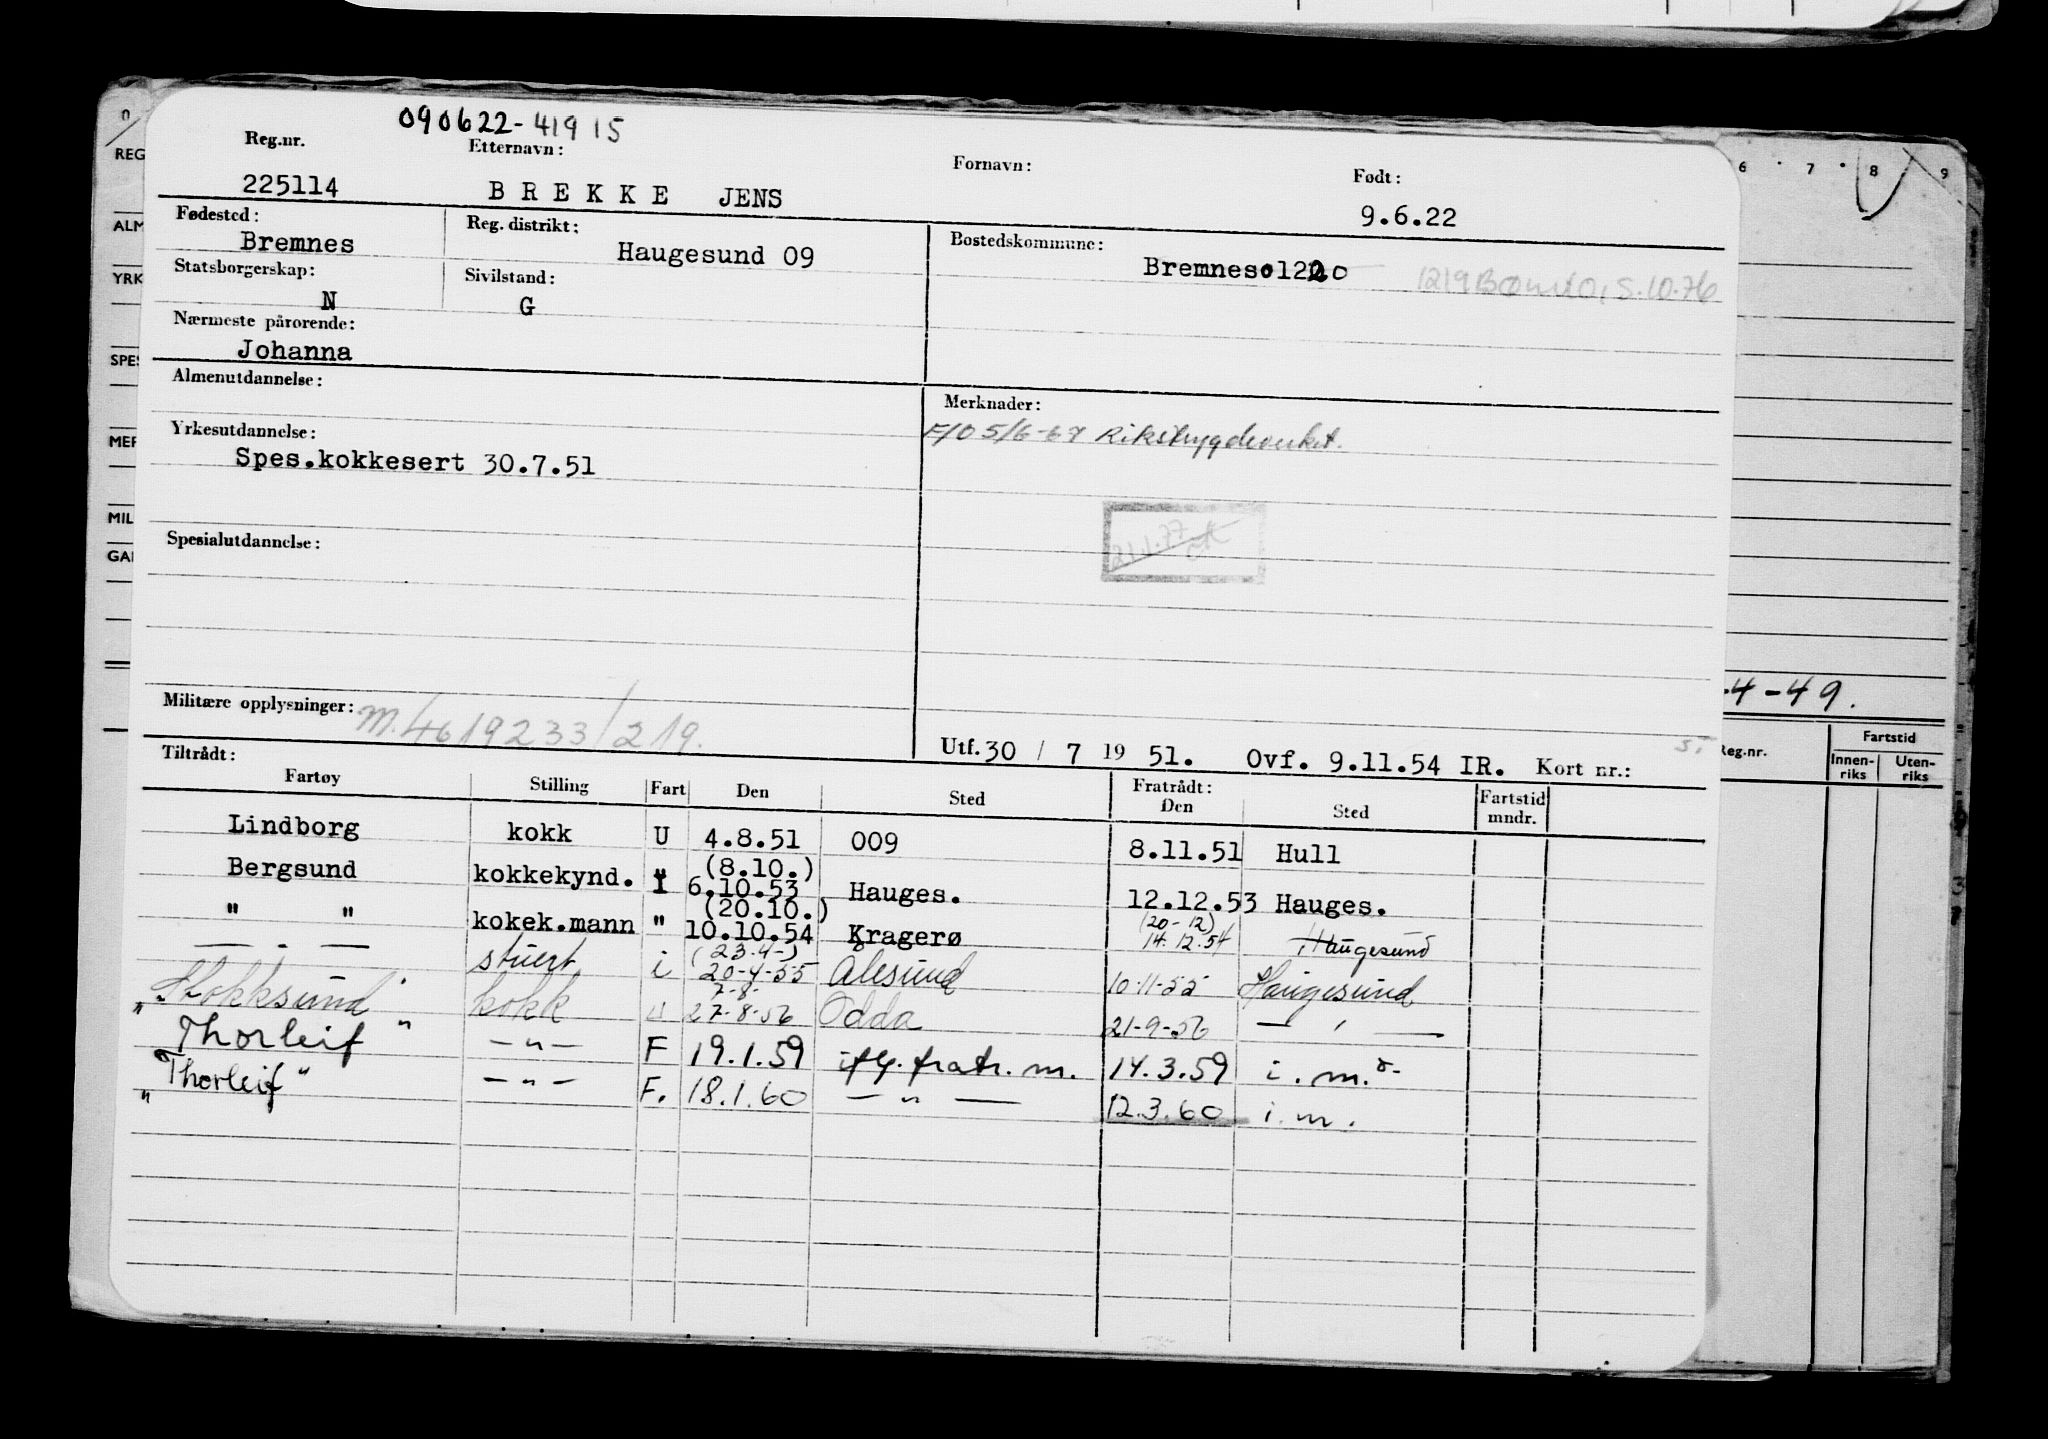 090622-41915
Reg.nr. Etternavn: Fornavn: Født:
225114 BREKKE JENS 9.6.22
Fødested: Reg. distrikt: Bostedskommune:
Bremnes Haugesund 09 Bremnes 1220 1219 Bømlo, 5.10.76
Statsborgerskap: Sivilstand:
N G
Nærmeste pårørende:
Johanna
Almenutdannelse: Merknader:
F/O 5/6-67 Rikstrygdeverket.
Yrkesutdannelse:
Spes.kokkesert 30.7.51
Spesialutdannelse:
Militære opplysninger: M.4619233/219.
Utf. 30 / 7 19 51. Ovf. 9.11.54 IR. Kort nr.:
Tiltrådt: Fratrådt:
Fartøy Stilling Fart Den Sted Den Sted Fartstid mndr.
Lindborg kokk U 4.8.51 009 8.11.51 Hull
(8.10.)
Bergsund kokkekynd. I 6.10.53 Hauges. 12.12.53 Hauges.
(20.10.) (20-12)
" " kokek.mann " 10.10.54 Kragerø 14.12.54 Haugesund
(23.4-)
— " — stuert i 20-4-55 Ålesund 10-11-55 Haugesund
7-8-
"Stokksund" kokk " 27-8-56 Odda 21-9-56 — " —
"Thorleif" — " — F 19.1.59 iflg. fratr. m. 14.3.59 i. m.
"Thorleif" — " — F. 18.1.60 — " — 12.3.60 i. m.
0
REG
ALM
YRK
SPES
MER
MIL
GAR
6 7 8 9
-4-49.
Reg.nr. Fartstid
Innen-riks Uten-riks